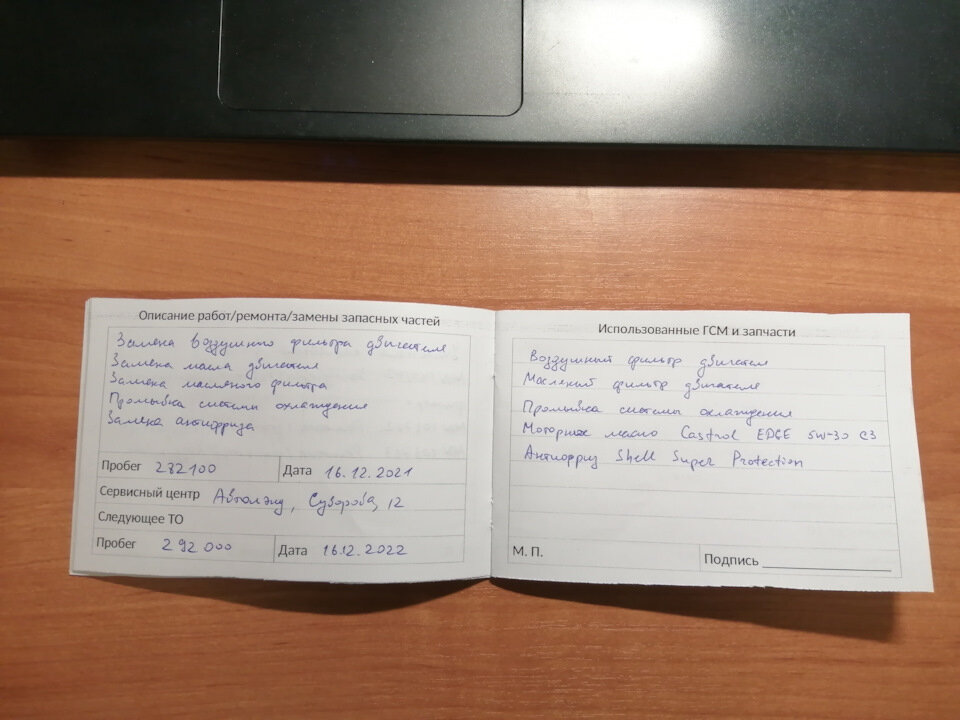 Описание работ/ремонта/замены запасных частей
Замена воздушного фильтра двигателя
Замена масла двигателя
Замена масляного фильтра
Промывка системы охлаждения
Замена антифриза
Пробег 282100 Дата 16.12.2021
Сервисный центр Автолэнд, Суворова, 12
Следующее ТО
Пробег 292000 Дата 16.12.2022
Использованные ГСМ и запчасти
Воздушный фильтр двигателя
Масляный фильтр двигателя
Промывка системы охлаждения
Моторное масло Castrol EDGE 5W-30 C3
Антифриз Shell Super Protection
М. П. Подпись